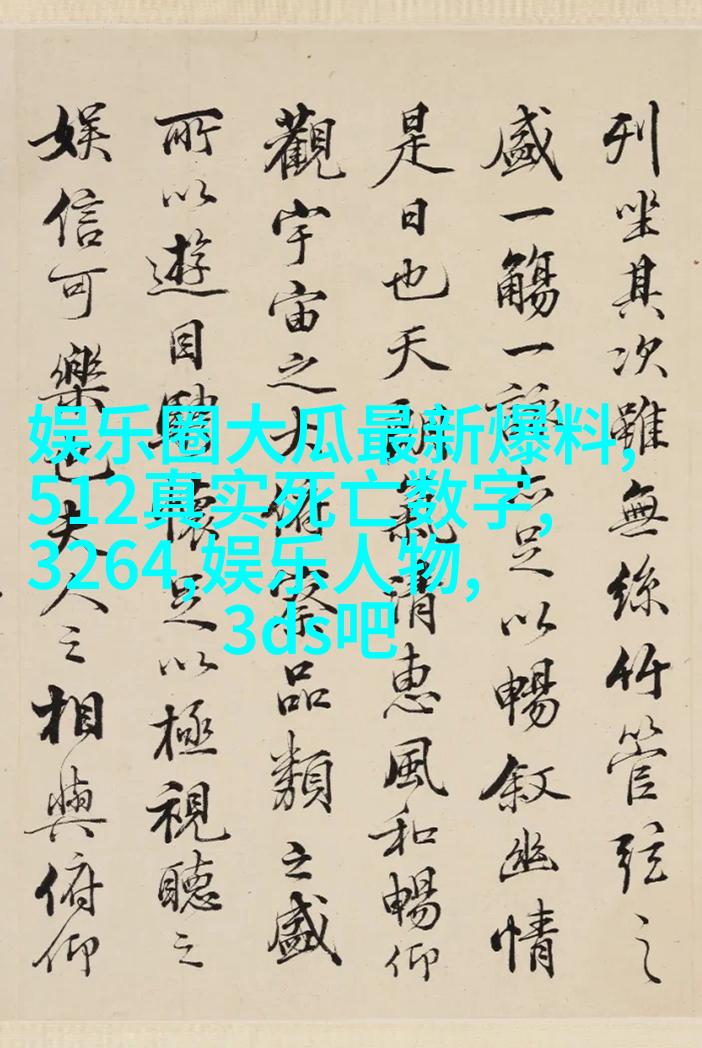 列坐其次雖無絲竹管弦之
盛一觴一詠亦足以暢敘幽情
是日也天朗氣清惠風和暢仰
觀宇宙之大俯察品類之盛
所以遊目騁懷足以極視聽之
娱信可樂也夫人之相與俯仰
娱乐圈大瓜最新爆料,
512真实死亡数字,
3264,娱乐人物,
3ds吧